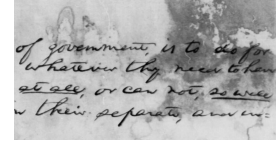 of government, is to do for
whatever they need to have
at all, or can not, so well
their separate, and in-